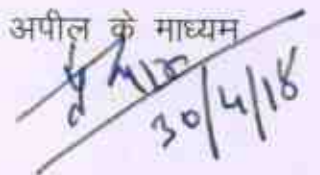 अपील के माध्यम
30/4/18